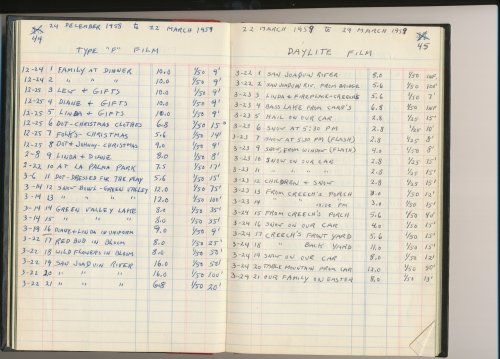 24 DECEMBER 1958 TO 22 MARCH 1959
44
TYPE "F" FILM
12-24 1 FAMILY AT DINNER 10.0 1/50 9'
12-24 2 " " " 10.0 1/50 9'
12-25 3 LEW + GIFTS 10.0 1/50 9'
12-25 4 DIANE + GIFTS 10.0 1/50 9'
12-25 5 LINDA + GIFTS 10.0 1/50 9'
12-25 6 DOT-CHRISTMAS CLOTHES 6.8 1/50 15'
12-25 7 FOLKS-CHRISTMAS 5.6 1/50 14'
12-25 8 DOT + JOHNNY-CHRISTMAS 9.0 1/50 9'
2-8 9 LINDA + DIANE 8.0 1/50 8'
2-22 10 AT LA PALMA PARK 7.5 1/50 17'
3-6 11 DOT-DRESSED FOR THE PLAY 5.6 1/50 15'
3-14 12 SNOW BOWL-GREEN VALLEY 12.0 1/50 75'
3-14 13 " " " " 12.0 1/50 100'
3-14 14 GREEN VALLEY LAKE 8.0 1/50 35'
3-14 15 " " " 8.0 1/50 35'
3-19 16 DIANE + LINDA IN UNIFORM 9.0 1/50 9'
3-22 17 RED BUD IN BLOOM 8.0 1/50 25'
3-22 18 WILD FLOWERS IN BLOOM 8.0 1/50 30'
3-22 19 SAN JOAQUIN RIVER 16.0 1/50 50'
3-22 20 " " " 16.0 1/50 100'
3-22 21 " " " 1/50 20'
22 MARCH 1959 TO 29 MARCH 1959
45
DAYLITE FILM
3-22 1 SAN JOAQUIN RIVER 8.0 1/50
3-22 2 SAN JOAQUIN RIV. FROM BRIDGE 5.6 1/50 100'
3-22 3 LINDA + FIREPLACE-CREECHS 4.0 1/10 7'
3-22 4 BASS LAKE FROM CARP'S 6.8 1/50
3-22 5 HAIL ON OUR CAR 2.8 1/25 15'
3-23 6 SNOW AT 5:30 PM 2.8 10'
3-23 7 SNOW AT 5:30 PM (FLASH) 2.8 1/25 8'
3-23 9 SNOW FROM WINDOW (FLASH) 4.0 1/50 8'
3-23 10 SNOW ON OUR CAR 2.8 1/25 15'
3-23 11 " " " " 2.8 1/25 15'
3-23 12 CHILDREN + SNOW 2.8 1/25 15'
3-23 13 FROM CREECH'S PORCH 8.0 1/50 12'
3-23 14 PM 3.0 1/50 15'
3-24 15 FROM CREECH'S PORCH 5.6 1/50 40'
3-24 16 SNOW ON OUR CAR 4.0 1/50 12'
3-24 17 CREECH'S FRONT YARD 5.6 1/50 15'
3-24 18 BACK YARD 11.0 1/50 15'
3-24 19 SNOW ON OUR CAR 8.0 1/50 12'
3-24 20 TABLE MOUNTAIN FROM CAR 12.0 1/50 50'
3-29 21 OUR FAMILY ON EASTER 8.0 1/50 15'